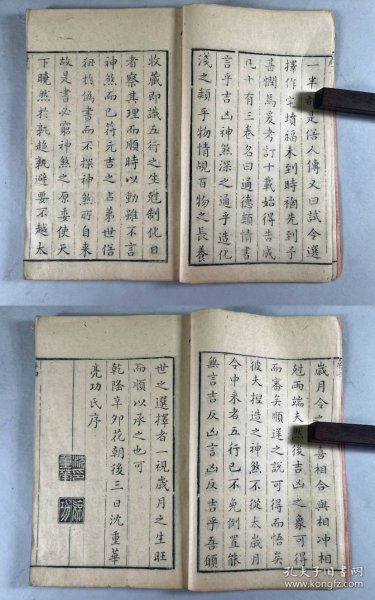 一半是俗人傳又曰試令選
擇作宅墳福未到時禍先到予
甚憫焉爰考訂十載始得告成
凡十有三卷名曰通德類情書
言乎吉凶神煞深之通乎造化
淺之類乎物情覘百物之長養
收藏即識五行之生尅制化日
者察其理而順時以動雖不言
神煞而已符元吉之占第世俗
狃於偽書而不探神煞所自来
故是書必窮神煞之原委使天
下曉然於孰趨孰避要不越太
歲月令之喜相合與相冲相
尅兩端夫然後吉凶之象可得
而審矣順逆之説可得而悟矣
彼夫捏造之神煞不從太歲月
令中来者五行已不免倒置能
無言吉反凶言凶反吉乎吾願
世之選擇者一視歲月之生旺
而順以承之也可
乾隆辛卯花朝後三日沈重華
亮功氏序
孔夫子旧书网